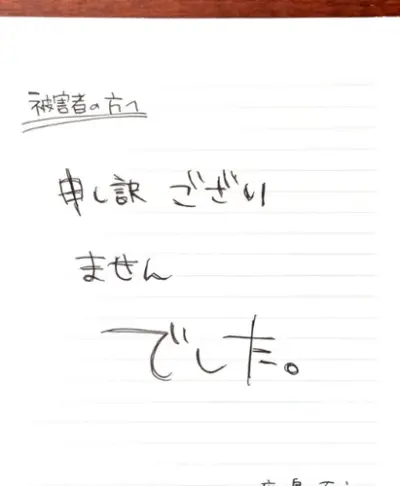 被害者の方へ
申し訳ございり
ません
でした。